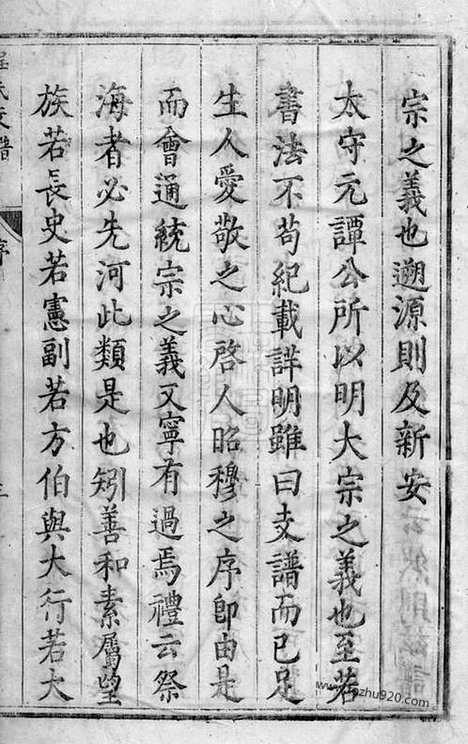 宗之義也遡源則及新安
太守元譚公所以明大宗之義也至若
書法不苟紀載詳明雖曰支譜而已足
生人愛敬之心啓人昭穆之序即由是
而會通統宗之義又寧有過焉禮云祭
海者必先河此類是也矧善和素屬望
族若長史若憲副若方伯與大行若大
程氏支譜
序
pzhu920.com